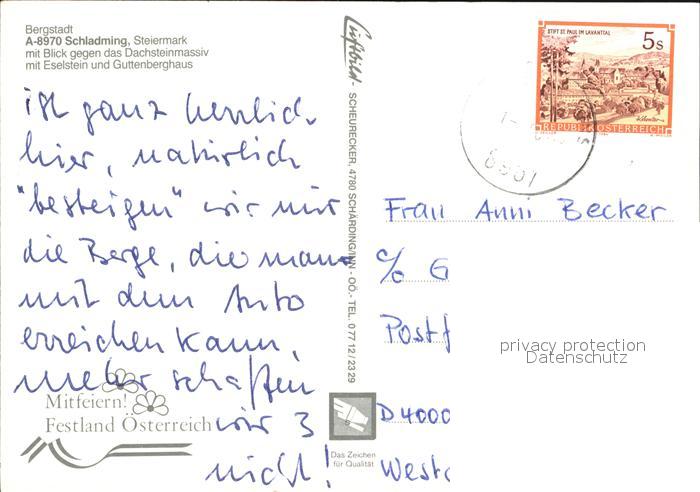 Bergstadt
A-8970 Schladming, Steiermark
mit Blick gegen das Dachsteinmassiv
mit Eselstein und Guttenberghaus
ist ganz herrlich
hier, natürlich
"besteigen" wir nur
die Berge, die man
mit dem Auto
erreichen kann,
mehr schaffen
wir 3
nicht!
Mitfeiern!
Festland Österreich
Luftbild-
SCHEURECKER, 4780 SCHÄRDING/INN - OÖ.- TEL. 0 77 12 / 23 29
Das Zeichen
für Qualität
STIFT ST. PAUL IM LAVANTTAL
5s
REPUBLIK ÖSTERREICH
Frau Anni Becker
c/o G
Postf
D 4000
West
privacy protection
Datenschutz